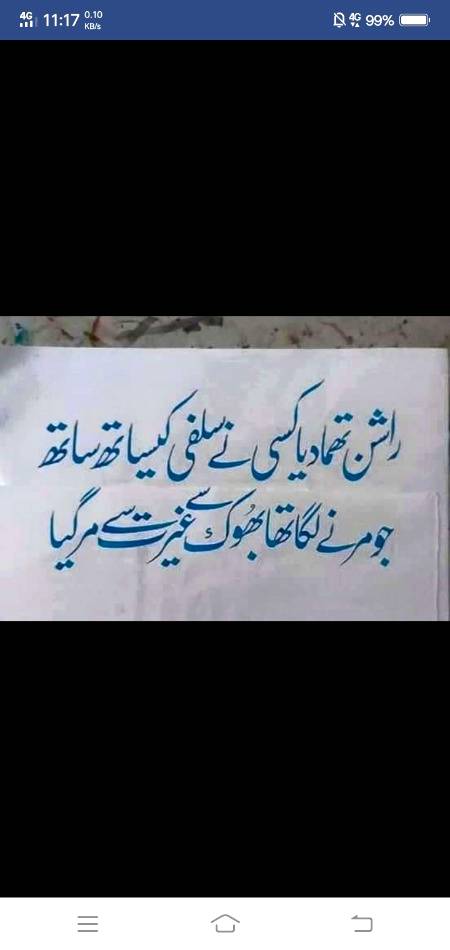 4G 11:17 0.10 KB/s 4G 99%
راشن تھما دیا کسی نے سلفی کیساتھ ساتھ
جو مرنے لگا تھا بھُوک سے غیرت سے مر گیا